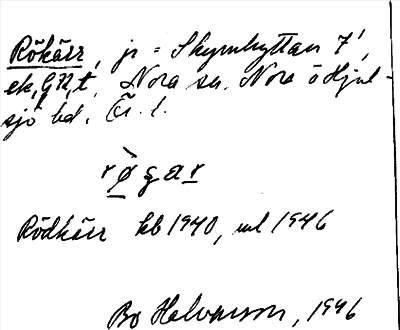 Rökärr, jr = Skyrnhyttan 7¹,
ek, GRt, Nora sn. Nora o Hjul-
sjö bd. Ör. l.
Rödkärr kb 1940, ml 1946
Bo Halvarson, 1946